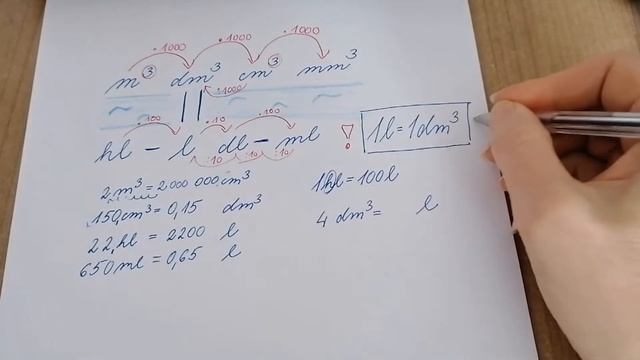 ·1000 ·1000 ·1000
m³ dm³ cm³ mm³
:1000
·100 ·10 ·100
hl - l dl - ml
:10 :10 :10
! 1l = 1dm³
2 m³ = 2 000 000 cm³
150 cm³ = 0,15 dm³
22 hl = 2200 l
650 ml = 0,65 l
1hl = 100l
4 dm³ = l